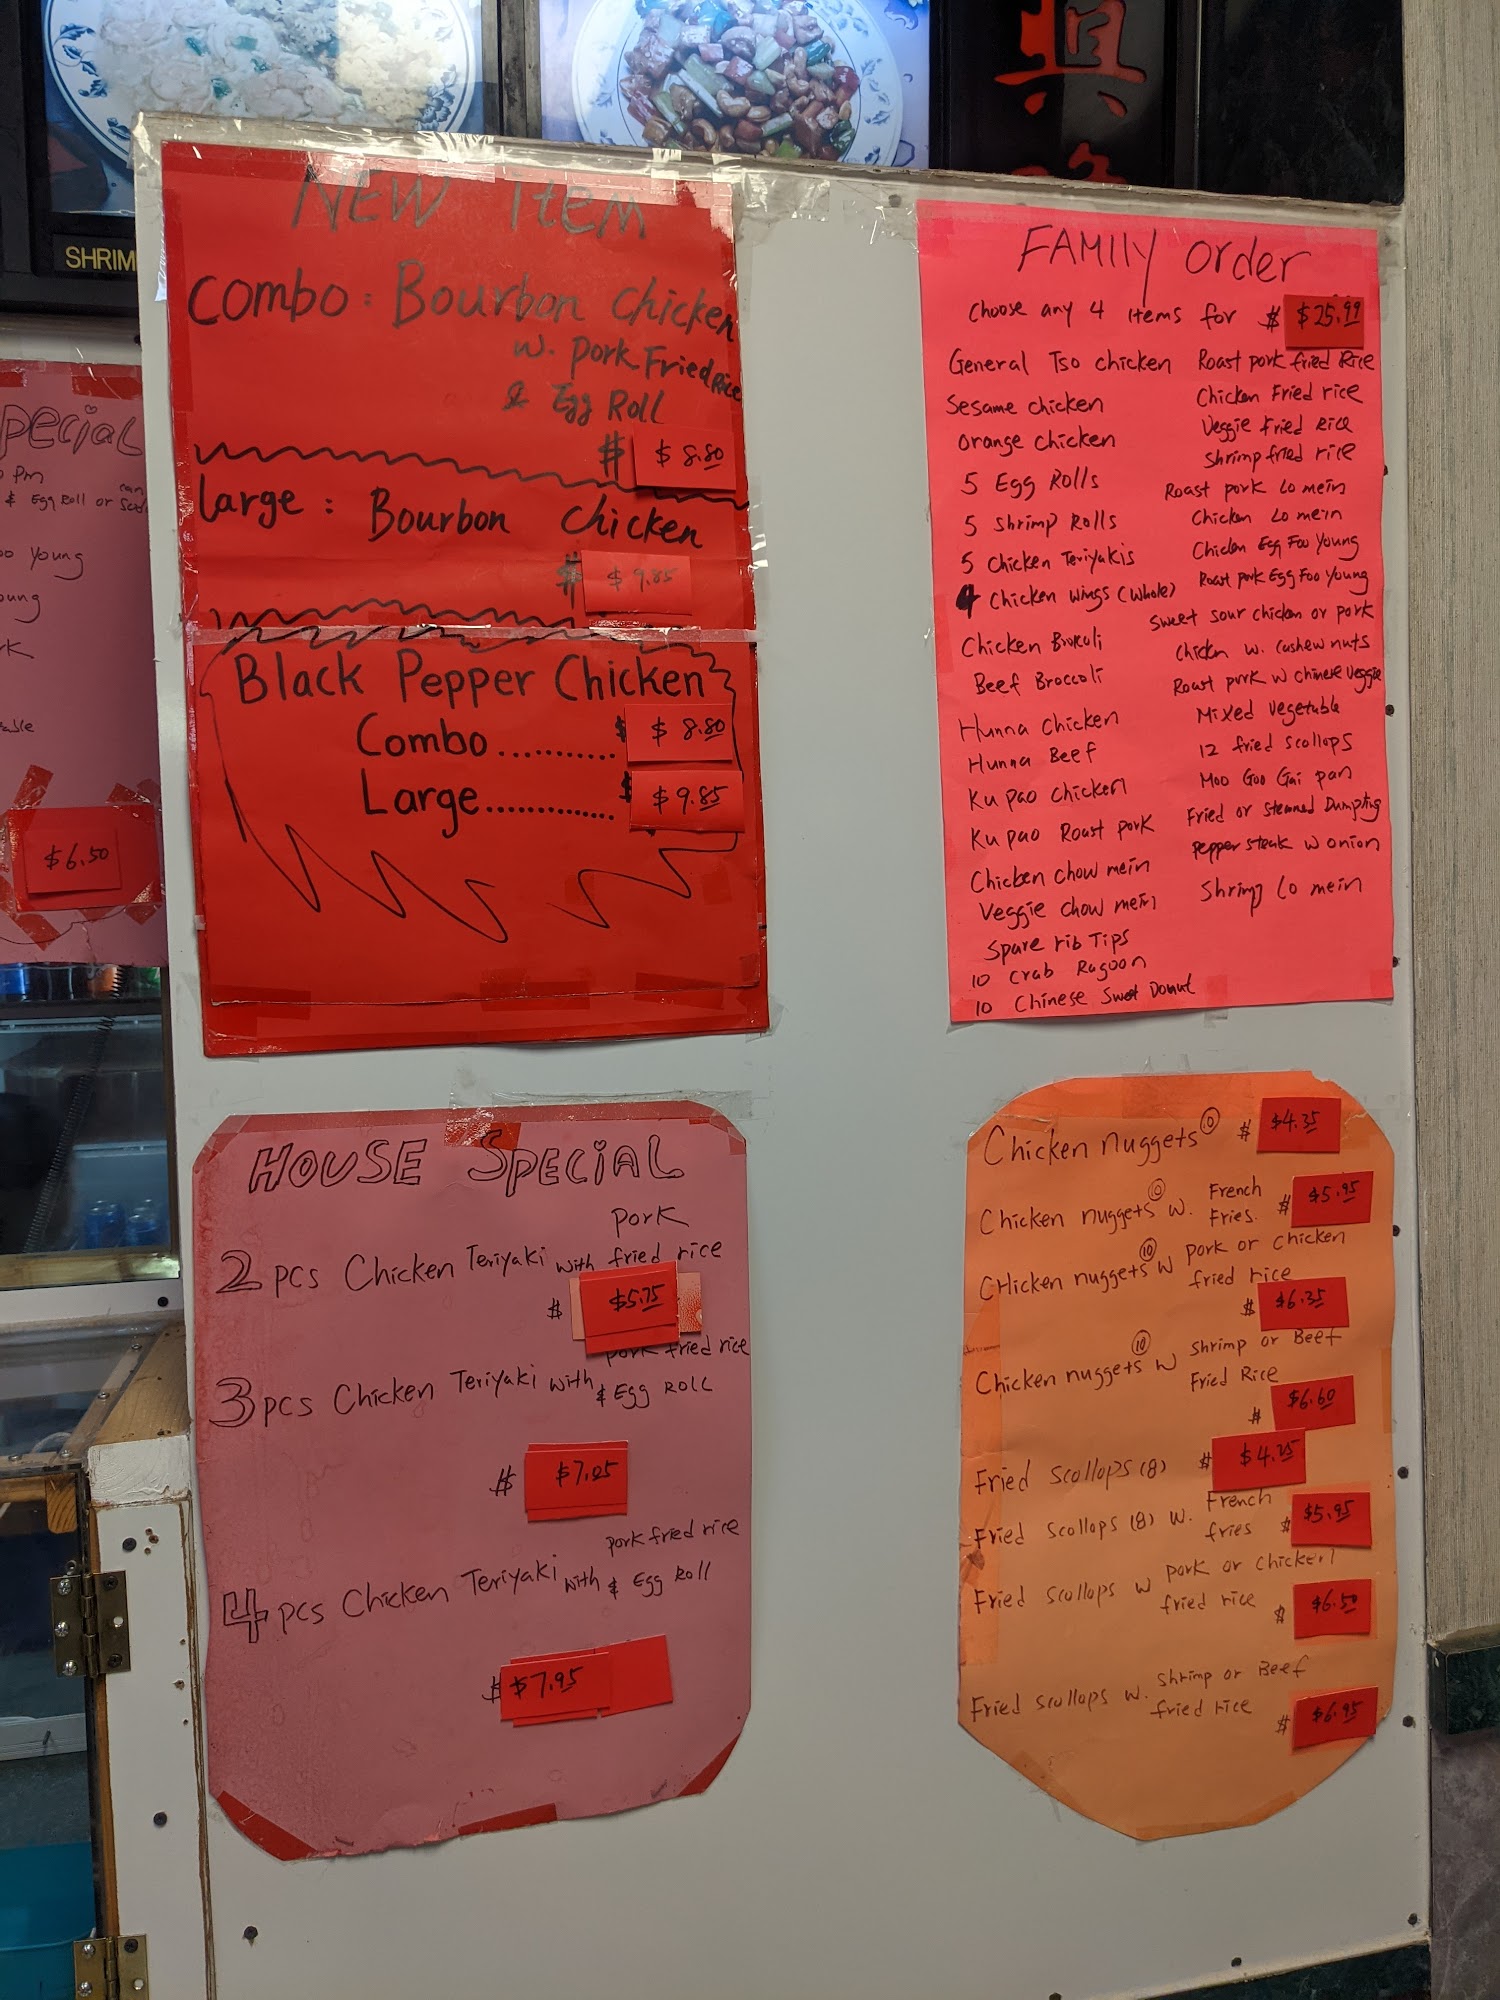 SHRIM
pecial
0 pm
& Egg Roll or
oo Young
oung
rk
able
$6.50
NEW item
combo: Bourbon chicken
w. pork Fried Rice
& Egg Roll
$ $8.80
large: Bourbon chicken
$ $9.85
Black Pepper Chicken
Combo.......... $ $8.80
Large............ $ $9.85
FAMILY order
choose any 4 items for $ $25.99
General Tso chicken
Sesame chicken
orange chicken
5 Egg Rolls
5 shrimp Rolls
5 Chicken Teriyakis
4 Chicken wings (whole)
Chicken Brocoli
Beef Broccoli
Hunna chicken
Hunna Beef
Ku pao chicken
Ku pao Roast pork
Chicken chow mein
Veggie chow mein
Spare rib Tips
10 Crab Ragoon
10 Chinese Sweet Donut
Roast pork fried Rice
Chicken Fried rice
Veggie fried Rice
Shrimp fried rice
Roast pork Lo mein
Chicken Lo mein
Chicken Egg Foo Young
Roast pork Egg Foo Young
Sweet sour chicken or pork
chicken w. cashew nuts
Roast pork w chinese Veggie
Mixed vegetable
12 fried scollops
Moo Goo Gai pan
Fried or Steamed Dumpling
pepper steak w onion
Shrimp Lo mein
HOUSE SPECiAL
2 pcs Chicken Teriyaki with pork fried rice
$ $5.75
3 pcs Chicken Teriyaki with pork fried rice & Egg Roll
$ $7.05
4 pcs Chicken Teriyaki with pork fried rice & Egg Roll
$ $7.95
Chicken nuggets 10 $ $4.35
Chicken nuggets 10 w. French Fries. $ $5.95
CHicken nuggets 10 w pork or chicken fried rice
$ $6.35
Chicken nuggets 10 w shrimp or Beef Fried Rice
$ $6.60
Fried scollops (8) $ $4.25
Fried scollops (8) w. French fries $ $5.95
Fried scollops w pork or chicken fried rice $ $6.50
Fried scollops w. shrimp or Beef fried rice $ $6.95